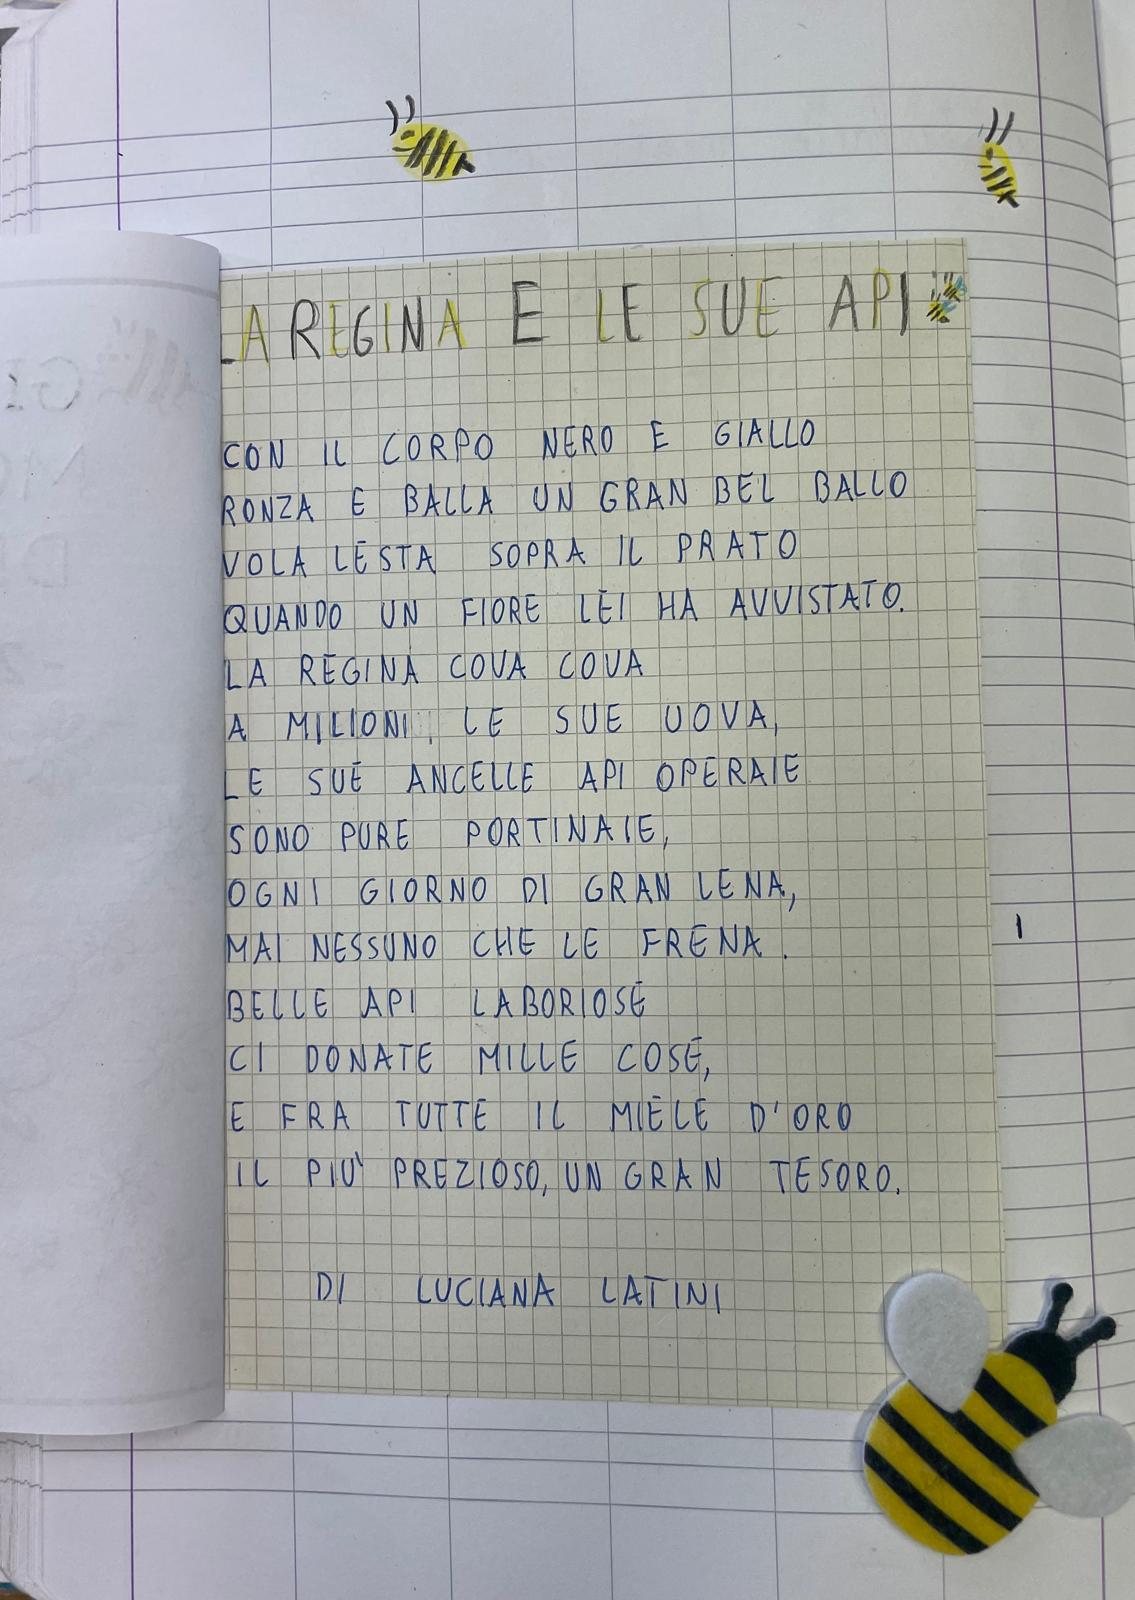 LA REGINA E LE SUE API
CON IL CORPO NERO E GIALLO
RONZA E BALLA UN GRAN BEL BALLO
VOLA LESTA SOPRA IL PRATO
QUANDO UN FIORE LEI HA AVVISTATO.
LA REGINA COVA COVA
A MILIONI LE SUE UOVA,
LE SUE ANCELLE API OPERAIE
SONO PURE PORTINAIE,
OGNI GIORNO DI GRAN LENA,
MAI NESSUNO CHE LE FRENA.
BELLE API LABORIOSE
CI DONATE MILLE COSE,
E FRA TUTTE IL MIELE D'ORO
IL PIU' PREZIOSO, UN GRAN TESORO.
DI LUCIANA LATINI